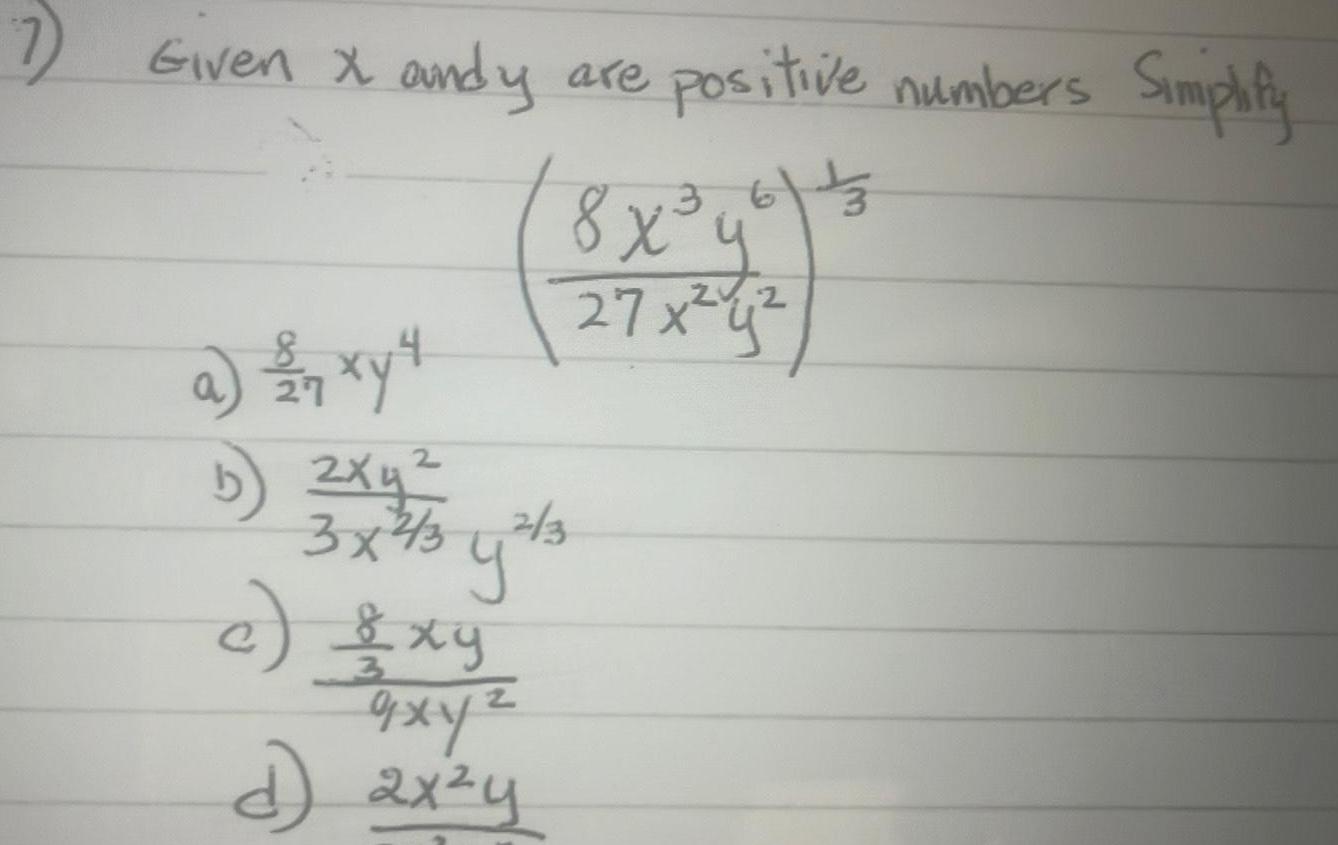 7) Given x and y are positive numbers Simplify
(8x³y⁶ / 27x²y²)^(1/3)
a) 8/27 xy⁴
b) 2xy² / 3x^(2/3) y^(2/3)
c) 8/3 xy / 9xy²
d) 2x²y